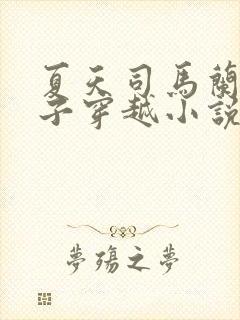 夏天司馬蘭
子穿越小說
夢殤之夢